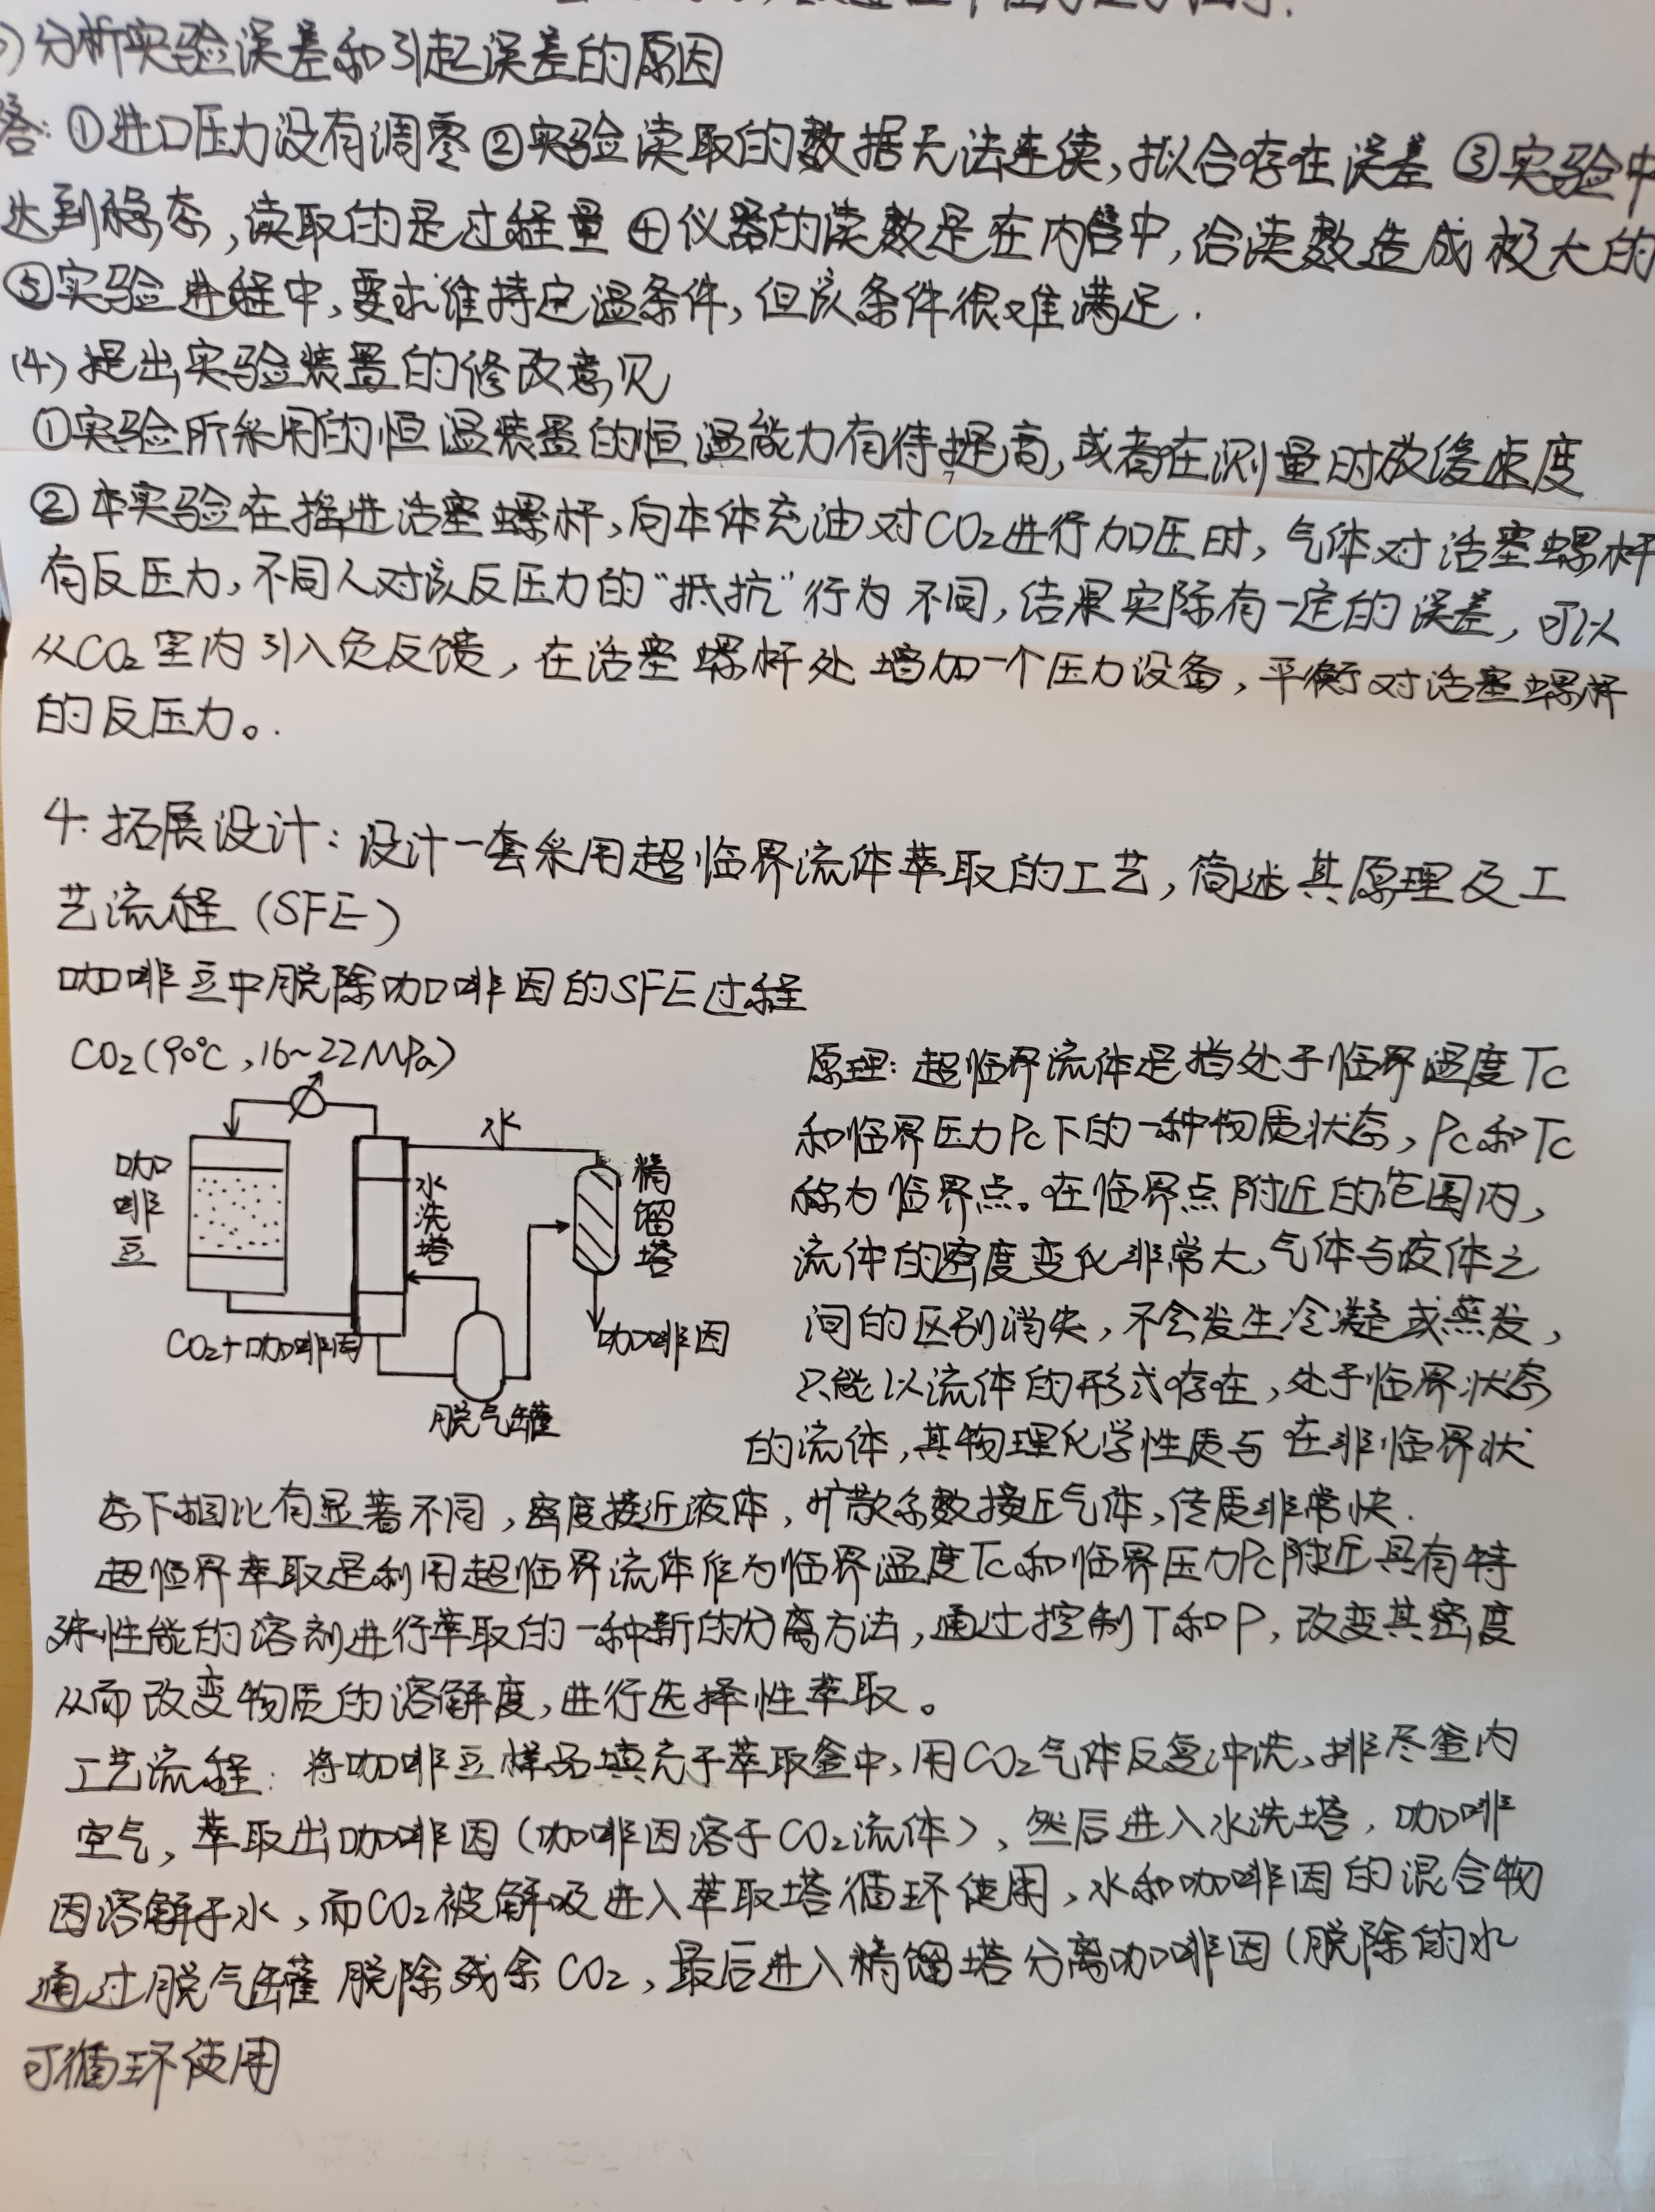 )分析实验误差和引起误差的原因
答:①进口压力没有调零②实验读取的数据无法连续,拟合存在误差 ③实验中
达到稳态,读取的是过程量 ④仪器的读数是在内管中,给读数造成极大的
⑤实验进程中,要求维持定温条件,但该条件很难满足.
(4)提出实验装置的修改意见
①实验所采用的恒温装置的恒温能力有待提高,或者在测量时放缓速度
②本实验在摇进活塞螺杆、向本体充油对CO₂进行加压时,气体对活塞螺杆
有反压力,不同人对该反压力的“抵抗”行为不同,结果实际有一定的误差,可以
从CO₂室内引入负反馈,在活塞螺杆处增加一个压力设备,平衡对活塞螺杆
的反压力。.
4.拓展设计:设计一套采用超临界流体萃取的工艺,简述其原理及工
艺流程(SFE)
咖啡豆中脱除咖啡因的SFE过程
CO₂(90℃,16~22MPa)
水
咖啡豆
水洗塔
精馏塔
CO₂+咖啡因
咖啡因
脱气罐
原理:超临界流体是指处于临界温度Tc
和临界压力Pc下的一种物质状态,Pc和Tc
称为临界点。在临界点附近的范围内,
流体的密度变化非常大,气体与液体之
间的区别消失,不会发生冷凝或蒸发,
只能以流体的形式存在,处于临界状态
的流体,其物理化学性质与在非临界状
态下相比有显著不同,密度接近液体,扩散系数接近气体,传质非常快.
超临界萃取是利用超临界流体作为临界温度Tc和临界压力Pc附近具有特
殊性能的溶剂进行萃取的一种新的分离方法,通过控制T和P,改变其密度
从而改变物质的溶解度,进行选择性萃取。
工艺流程:将咖啡豆样品填充于萃取釜中,用CO₂气体反复冲洗、排尽釜内
空气,萃取出咖啡因(咖啡因溶于CO₂流体),然后进入水洗塔,咖啡
因溶解于水,而CO₂被解吸进入萃取塔循环使用,水和咖啡因的混合物
通过脱气罐脱除残余CO₂,最后进入精馏塔分离咖啡因(脱除的水
可循环使用